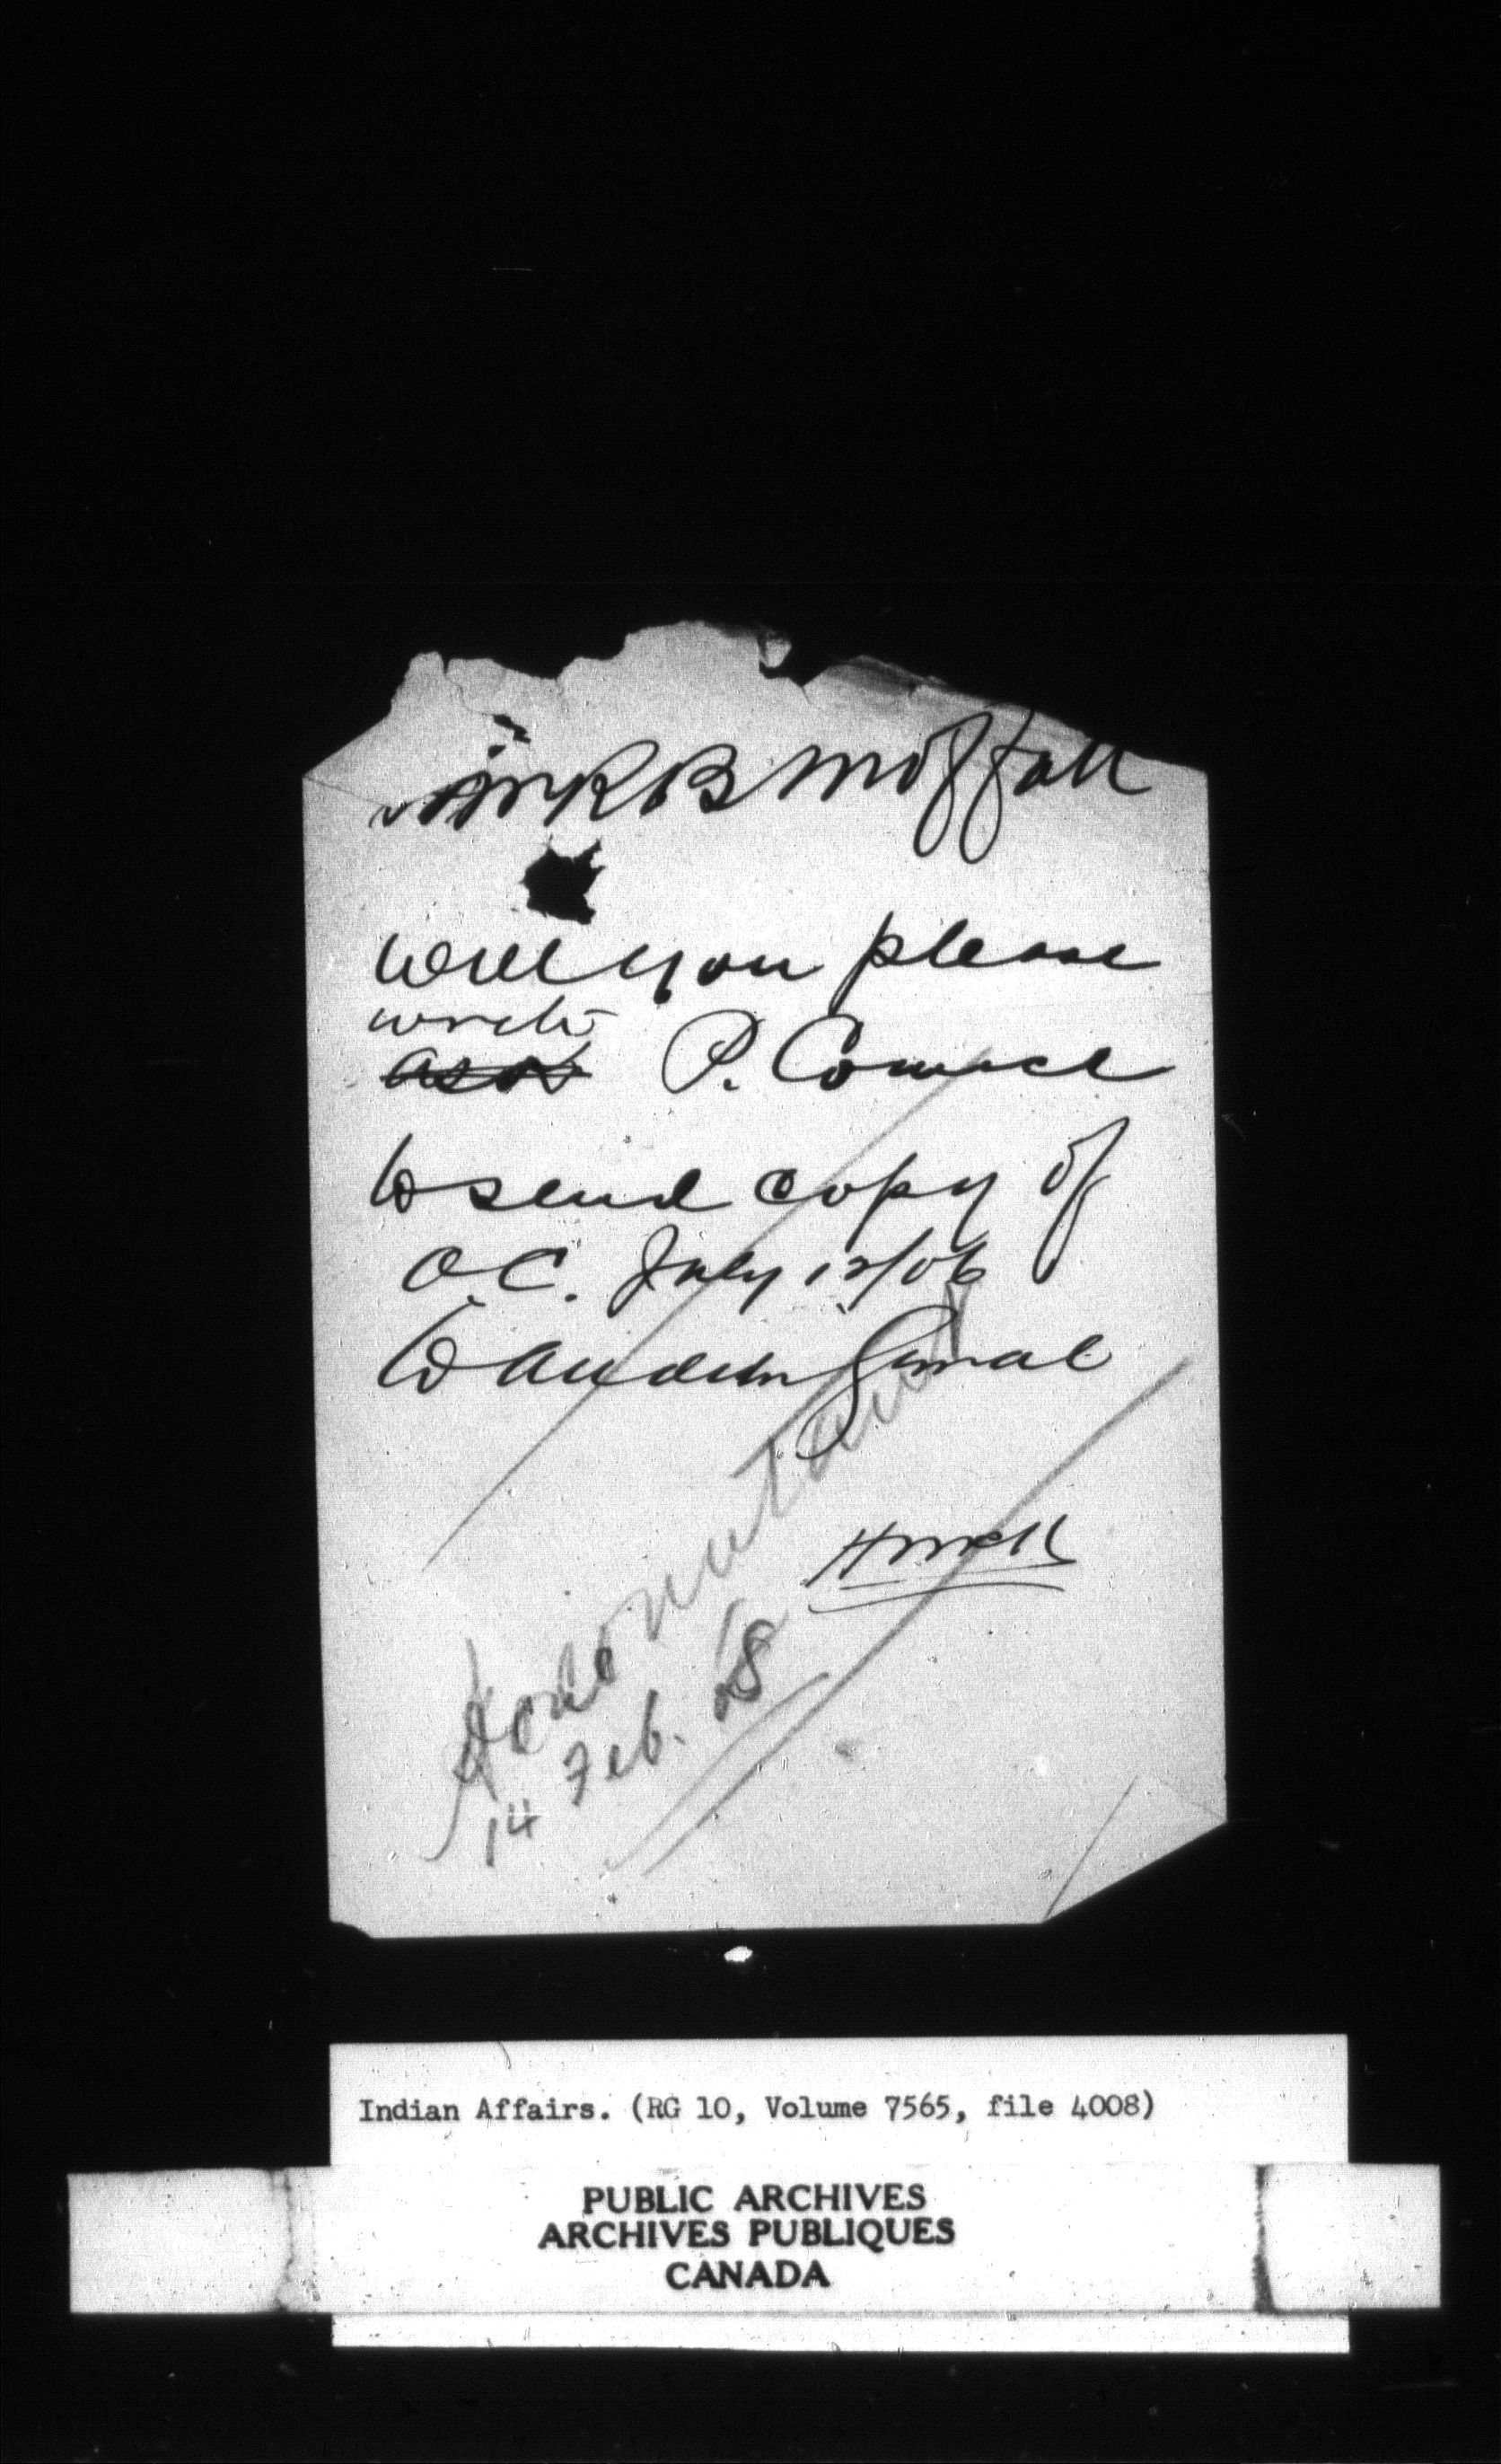 Mr R B Moffatt
Will you please
write
ask P. Council
to send copy of
O.C. July 12/06
to Auditor General
14 Feb. '08
Indian Affairs. (RG 10, Volume 7565, file 4008)
PUBLIC ARCHIVES
ARCHIVES PUBLIQUES
CANADA